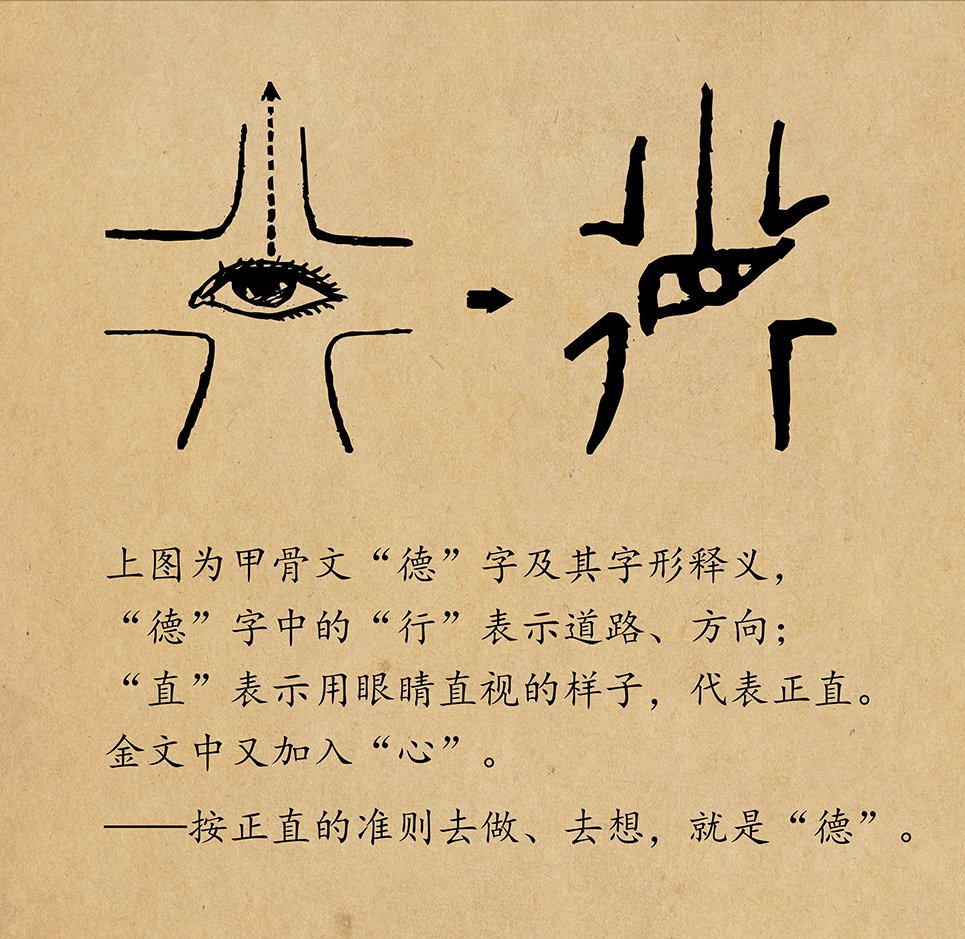 上图为甲骨文“德”字及其字形释义，
“德”字中的“行”表示道路、方向；
“直”表示用眼睛直视的样子，代表正直。
金文中又加入“心”。
——按正直的准则去做、去想，就是“德”。